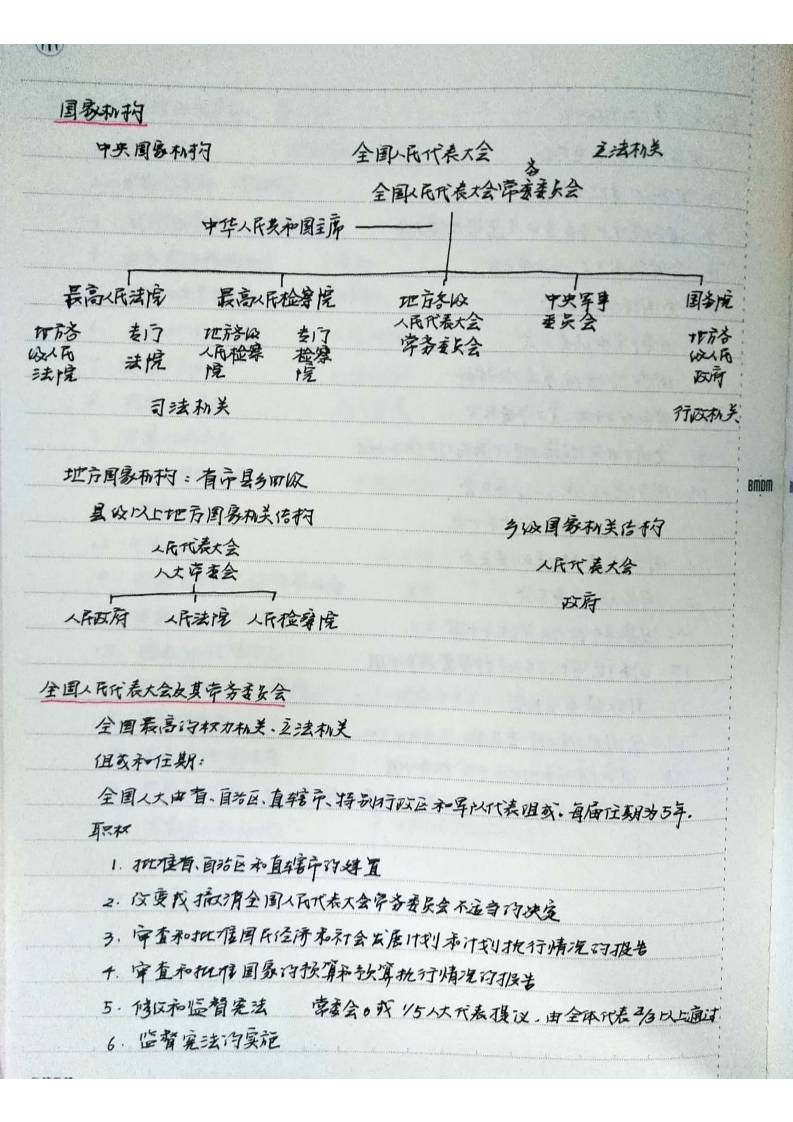 国家机构
中央国家机构 全国人民代表大会 立法机关
务
全国人民代表大会常委委员会
中华人民共和国主席
最高人民法院 最高人民检察院 地方各级 中央军事 国务院
人民代表大会 委员会
常务委员会
地方各 专门 地方各级 专门 地方各
级人民 法院 人民检察 检察 级人民
法院 院 院 政府
司法机关 行政机关
地方国家机构：有市县乡四级
BMDM
县级以上地方国家机关结构 乡级国家机关结构
人民代表大会 人民代表大会
人大常委会 政府
人民政府 人民法院 人民检察院
全国人民代表大会及其常务委员会
全国最高的权力机关、立法机关
组成和任期：
全国人大由省、自治区、直辖市、特别行政区和军队代表组成。每届任期为5年.
职权
1. 批准省、自治区和直辖市的建置
2. 改变或撤消全国人民代表大会常务委员会不适当的决定
3. 审查和批准国民经济和社会发展计划和计划执行情况的报告
4. 审查和批准国家的预算和预算执行情况的报告
5. 修改和监督宪法 常委会。或1/5人大代表提议，由全体代表2/3以上通过
6. 监督宪法的实施